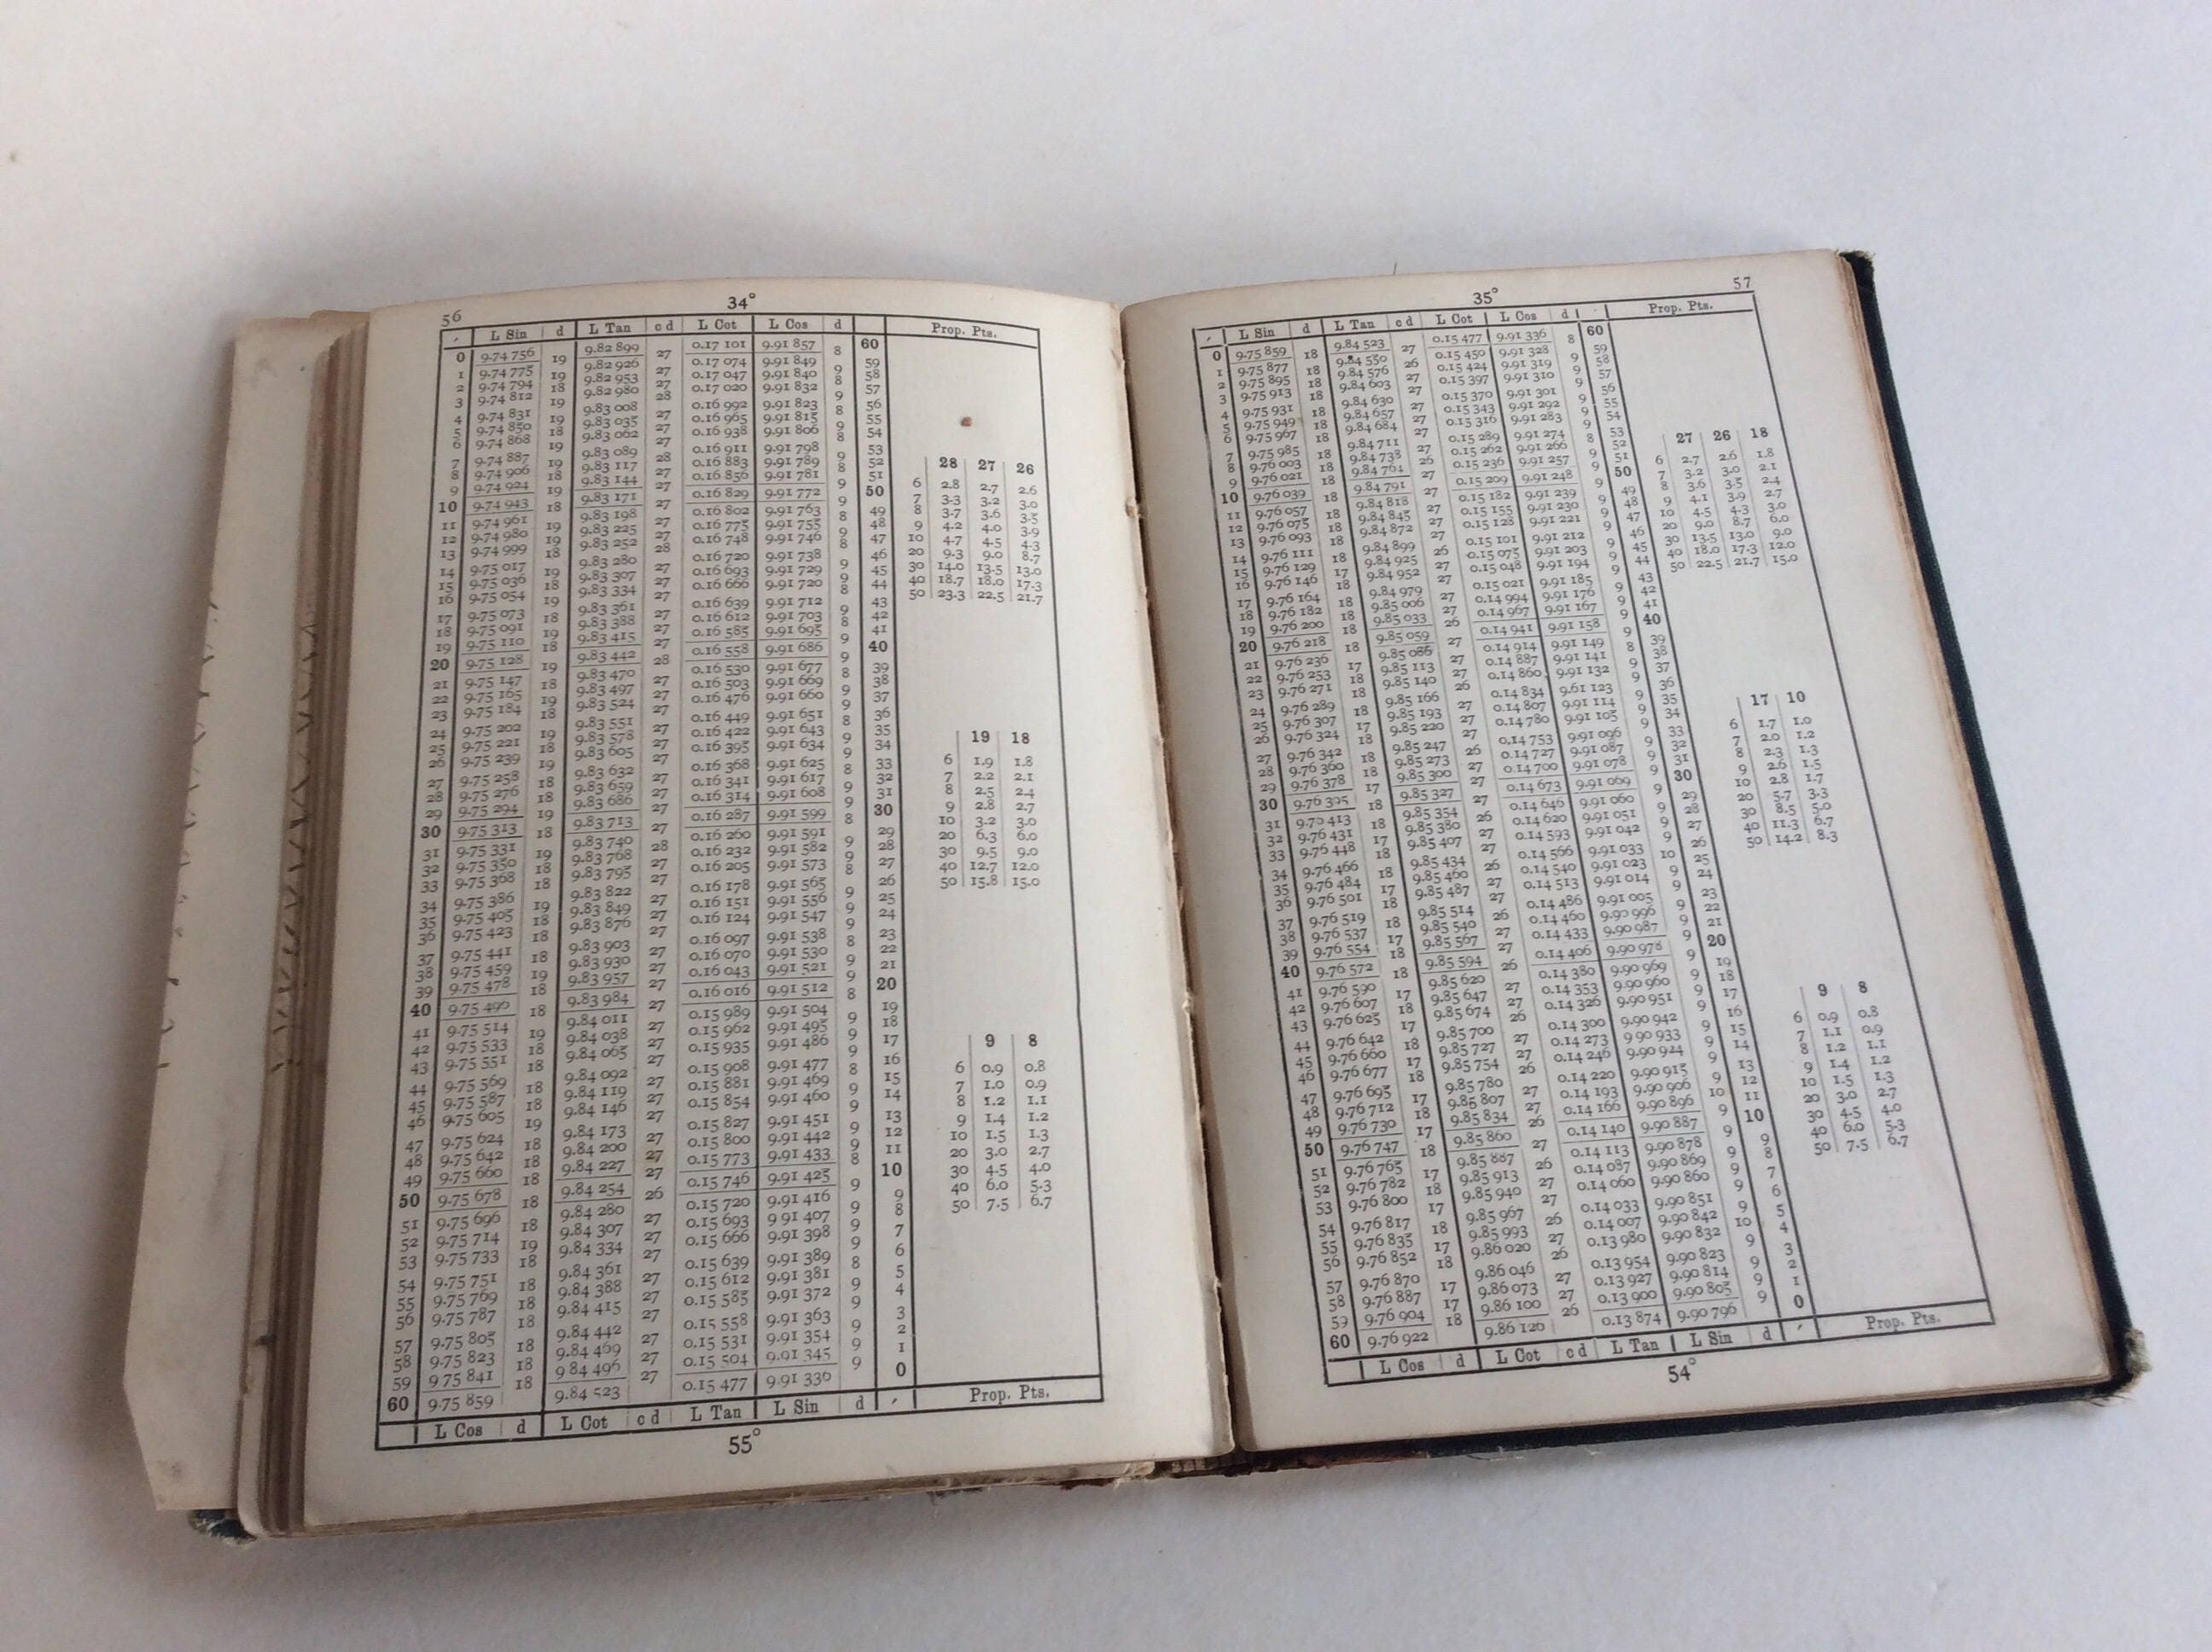 56
34°
′ L Sin d L Tan c d L Cot L Cos d Prop. Pts.
0 9.74 756 19 9.82 899 27 0.17 101 9.91 857 8 60
1 9.74 775 19 9.82 926 27 0.17 074 9.91 849 9 59
2 9.74 794 18 9.82 953 27 0.17 047 9.91 840 8 58
3 9.74 812 19 9.82 980 28 0.17 020 9.91 832 9 57
4 9.74 831 19 9.83 008 27 0.16 992 9.91 823 8 56
5 9.74 850 18 9.83 035 27 0.16 965 9.91 815 9 55
6 9.74 868 19 9.83 062 27 0.16 938 9.91 806 8 54
7 9.74 887 19 9.83 089 28 0.16 911 9.91 798 9 53
8 9.74 906 18 9.83 117 27 0.16 883 9.91 789 8 52
9 9.74 924 19 9.83 144 27 0.16 856 9.91 781 9 51
10 9.74 943 18 9.83 171 27 0.16 829 9.91 772 9 50
11 9.74 961 19 9.83 198 27 0.16 802 9.91 763 8 49
12 9.74 980 19 9.83 225 27 0.16 775 9.91 755 9 48
13 9.74 999 18 9.83 252 28 0.16 748 9.91 746 8 47
14 9.75 017 19 9.83 280 27 0.16 720 9.91 738 9 46
15 9.75 036 18 9.83 307 27 0.16 693 9.91 729 9 45
16 9.75 054 19 9.83 334 27 0.16 666 9.91 720 8 44
17 9.75 073 18 9.83 361 27 0.16 639 9.91 712 9 43
18 9.75 091 19 9.83 388 27 0.16 612 9.91 703 8 42
19 9.75 110 18 9.83 415 27 0.16 585 9.91 695 9 41
20 9.75 128 19 9.83 442 28 0.16 558 9.91 686 9 40
21 9.75 147 18 9.83 470 27 0.16 530 9.91 677 8 39
22 9.75 165 19 9.83 497 27 0.16 503 9.91 669 9 38
23 9.75 184 18 9.83 524 27 0.16 476 9.91 660 9 37
24 9.75 202 19 9.83 551 27 0.16 449 9.91 651 8 36
25 9.75 221 18 9.83 578 27 0.16 422 9.91 643 9 35
26 9.75 239 19 9.83 605 27 0.16 395 9.91 634 9 34
27 9.75 258 18 9.83 632 27 0.16 368 9.91 625 8 33
28 9.75 276 18 9.83 659 27 0.16 341 9.91 617 9 32
29 9.75 294 19 9.83 686 27 0.16 314 9.91 608 9 31
30 9.75 313 18 9.83 713 27 0.16 287 9.91 599 8 30
31 9.75 331 19 9.83 740 28 0.16 260 9.91 591 9 29
32 9.75 350 18 9.83 768 27 0.16 232 9.91 582 9 28
33 9.75 368 18 9.83 795 27 0.16 205 9.91 573 8 27
34 9.75 386 19 9.83 822 27 0.16 178 9.91 565 9 26
35 9.75 405 18 9.83 849 27 0.16 151 9.91 556 9 25
36 9.75 423 18 9.83 876 27 0.16 124 9.91 547 9 24
37 9.75 441 18 9.83 903 27 0.16 097 9.91 538 8 23
38 9.75 459 19 9.83 930 27 0.16 070 9.91 530 9 22
39 9.75 478 18 9.83 957 27 0.16 043 9.91 521 9 21
40 9.75 496 18 9.83 984 27 0.16 016 9.91 512 8 20
41 9.75 514 19 9.84 011 27 0.15 989 9.91 504 9 19
42 9.75 533 18 9.84 038 27 0.15 962 9.91 495 9 18
43 9.75 551 18 9.84 065 27 0.15 935 9.91 486 9 17
44 9.75 569 18 9.84 092 27 0.15 908 9.91 477 8 16
45 9.75 587 18 9.84 119 27 0.15 881 9.91 469 9 15
46 9.75 605 19 9.84 146 27 0.15 854 9.91 460 9 14
47 9.75 624 18 9.84 173 27 0.15 827 9.91 451 9 13
48 9.75 642 18 9.84 200 27 0.15 800 9.91 442 9 12
49 9.75 660 18 9.84 227 27 0.15 773 9.91 433 8 11
50 9.75 678 18 9.84 254 26 0.15 746 9.91 425 9 10
51 9.75 696 18 9.84 280 27 0.15 720 9.91 416 9 9
52 9.75 714 19 9.84 307 27 0.15 693 9 91 407 9 8
53 9.75 733 18 9.84 334 27 0.15 666 9.91 398 9 7
54 9.75 751 18 9.84 361 27 0.15 639 9.91 389 8 6
55 9.75 769 18 9.84 388 27 0.15 612 9.91 381 9 5
56 9.75 787 18 9.84 415 27 0.15 585 9.91 372 9 4
57 9.75 805 18 9.84 442 27 0.15 558 9.91 363 9 3
58 9.75 823 18 9.84 469 27 0.15 531 9.91 354 9 2
59 9 75 841 18 9 84 496 27 0.15 504 9.91 345 9 1
60 9.75 859 9.84 523 0.15 477 9.91 336 0
L Cos d L Cot c d L Tan L Sin d ′ Prop. Pts.
55°
28 27 26
6 2.8 2.7 2.6
7 3.3 3.2 3.0
8 3.7 3.6 3.5
9 4.2 4.0 3.9
10 4.7 4.5 4.3
20 9.3 9.0 8.7
30 14.0 13.5 13.0
40 18.7 18.0 17.3
50 23.3 22.5 21.7
19 18
6 1.9 1.8
7 2.2 2.1
8 2.5 2.4
9 2.8 2.7
10 3.2 3.0
20 6.3 6.0
30 9.5 9.0
40 12.7 12.0
50 15.8 15.0
9 8
6 0.9 0.8
7 1.0 0.9
8 1.2 1.1
9 1.4 1.2
10 1.5 1.3
20 3.0 2.7
30 4.5 4.0
40 6.0 5.3
50 7.5 6.7
57
35°
′ L Sin d L Tan c d L Cot L Cos d ′ Prop. Pts.
0 9.75 859 18 9.84 523 27 0.15 477 9.91 336 8 60
1 9.75 877 18 9.84 550 26 0.15 450 9.91 328 9 59
2 9.75 895 18 9.84 576 27 0.15 424 9.91 319 9 58
3 9.75 913 18 9.84 603 27 0.15 397 9.91 310 9 57
4 9.75 931 18 9.84 630 27 0.15 370 9.91 301 9 56
5 9.75 949 18 9.84 657 27 0.15 343 9.91 292 9 55
6 9.75 967 18 9.84 684 27 0.15 316 9.91 283 9 54
7 9.75 985 18 9.84 711 27 0.15 289 9.91 274 8 53
8 9.76 003 18 9.84 738 26 0.15 262 9.91 266 9 52
9 9.76 021 18 9.84 764 27 0.15 236 9.91 257 9 51
10 9.76 039 18 9.84 791 27 0.15 209 9.91 248 9 50
11 9.76 057 18 9.84 818 27 0.15 182 9.91 239 9 49
12 9.76 075 18 9.84 845 27 0.15 155 9.91 230 9 48
13 9.76 093 18 9.84 872 27 0.15 128 9.91 221 9 47
14 9.76 111 18 9.84 899 26 0.15 101 9.91 212 9 46
15 9.76 129 17 9.84 925 27 0.15 075 9.91 203 9 45
16 9.76 146 18 9.84 952 27 0.15 048 9.91 194 9 44
17 9.76 164 18 9.84 979 27 0.15 021 9.91 185 9 43
18 9.76 182 18 9.85 006 27 0.14 994 9.91 176 9 42
19 9.76 200 18 9.85 033 26 0.14 967 9.91 167 9 41
20 9.76 218 18 9.85 059 27 0.14 941 9.91 158 9 40
21 9.76 236 17 9.85 086 27 0.14 914 9.91 149 8 39
22 9.76 253 18 9.85 113 27 0.14 887 9.91 141 9 38
23 9.76 271 18 9.85 140 26 0.14 860 9.91 132 9 37
24 9.76 289 18 9.85 166 27 0.14 834 9.61 123 9 36
25 9.76 307 17 9.85 193 27 0.14 807 9.91 114 9 35
26 9.76 324 18 9.85 220 27 0.14 780 9.91 105 9 34
27 9.76 342 18 9.85 247 26 0.14 753 9.91 096 9 33
28 9.76 360 18 9.85 273 27 0.14 727 9.91 087 9 32
29 9.76 378 17 9.85 300 27 0.14 700 9.91 078 9 31
30 9.76 395 18 9.85 327 27 0.14 673 9.91 069 9 30
31 9.76 413 18 9.85 354 26 0.14 646 9.91 060 9 29
32 9.76 431 17 9.85 380 27 0.14 620 9.91 051 9 28
33 9.76 448 18 9.85 407 27 0.14 593 9.91 042 9 27
34 9.76 466 18 9.85 434 26 0.14 566 9.91 033 10 26
35 9.76 484 17 9.85 460 27 0.14 540 9.91 023 9 25
36 9.76 501 18 9.85 487 27 0.14 513 9.91 014 9 24
37 9.76 519 18 9.85 514 26 0.14 486 9.91 005 9 23
38 9.76 537 17 9.85 540 27 0.14 460 9.90 996 9 22
39 9.76 554 18 9.85 567 27 0.14 433 9.90 987 9 21
40 9.76 572 18 9.85 594 26 0.14 406 9.90 978 9 20
41 9.76 590 17 9.85 620 27 0.14 380 9.90 969 9 19
42 9.76 607 18 9.85 647 27 0.14 353 9.90 960 9 18
43 9.76 625 17 9.85 674 26 0.14 326 9.90 951 9 17
44 9.76 642 18 9.85 700 27 0.14 300 9.90 942 9 16
45 9.76 660 17 9.85 727 27 0.14 273 9.90 933 9 15
46 9.76 677 18 9.85 754 26 0.14 246 9.90 924 9 14
47 9.76 695 17 9.85 780 27 0.14 220 9.90 915 9 13
48 9.76 712 18 9.85 807 27 0.14 193 9.90 906 10 12
49 9.76 730 17 9.85 834 26 0.14 166 9.90 896 9 11
50 9.76 747 18 9.85 860 27 0.14 140 9.90 887 9 10
51 9.76 765 17 9.85 887 26 0.14 113 9.90 878 9 9
52 9.76 782 18 9.85 913 27 0.14 087 9.90 869 9 8
53 9.76 800 17 9.85 940 27 0.14 060 9.90 860 9 7
54 9.76 817 18 9.85 967 26 0.14 033 9.90 851 9 6
55 9.76 835 17 9.85 993 27 0.14 007 9.90 842 10 5
56 9.76 852 18 9.86 020 26 0.13 980 9.90 832 9 4
57 9.76 870 17 9.86 046 27 0.13 954 9.90 823 9 3
58 9.76 887 17 9.86 073 27 0.13 927 9.90 814 9 2
59 9.76 904 18 9.86 100 26 0.13 900 9.90 805 9 1
60 9.76 922 9.86 126 0.13 874 9.90 796 0
L Cos d L Cot c d L Tan L Sin d ′ Prop. Pts.
54°
27 26 18
6 2.7 2.6 1.8
7 3.2 3.0 2.1
8 3.6 3.5 2.4
9 4.1 3.9 2.7
10 4.5 4.3 3.0
20 9.0 8.7 6.0
30 13.5 13.0 9.0
40 18.0 17.3 12.0
50 22.5 21.7 15.0
17 10
6 1.7 1.0
7 2.0 1.2
8 2.3 1.3
9 2.6 1.5
10 2.8 1.7
20 5.7 3.3
30 8.5 5.0
40 11.3 6.7
50 14.2 8.3
9 8
6 0.9 0.8
7 1.1 0.9
8 1.2 1.1
9 1.4 1.2
10 1.5 1.3
20 3.0 2.7
30 4.5 4.0
40 6.0 5.3
50 7.5 6.7